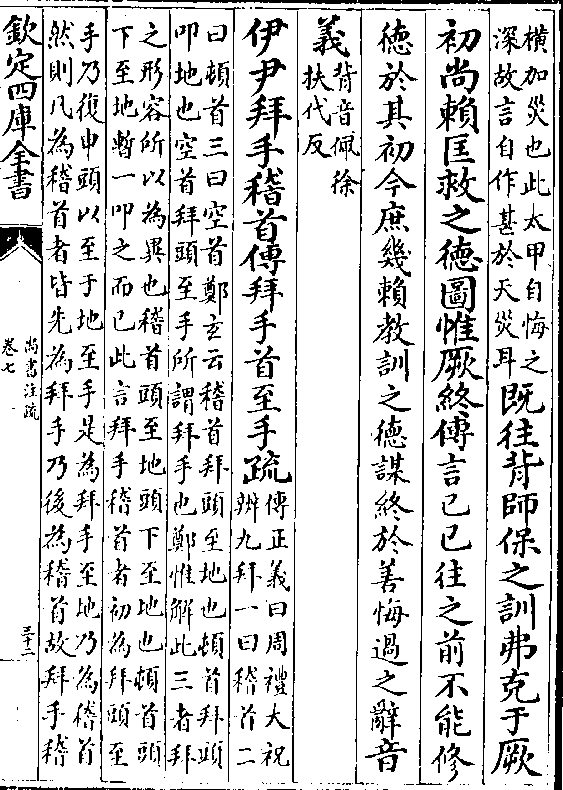 橫加災也此太甲自悔之
深故言自作甚於天災耳
既往背師保之訓弗克于厥
初尚賴匡救之德圖惟厥終傳言已已往之前不能修
德於其初今庶幾賴教訓之德謀終於善悔過之辭音
義
背音佩徐
扶代反
伊尹拜手稽首傳拜手首至手疏
傳正義曰周禮大祝
辨九拜一曰稽首二
曰頓首三曰空首鄭玄云稽首拜頭至地也頓首拜頭
叩地也空首拜頭至手所謂拜手也鄭惟解此三者拜
之形容所以為異也稽首頭至地頭下至地也頓首頭
下至地暫一叩之而已此言拜手稽首者初為拜頭至
手乃復申頭以至于地至手是為拜手至地乃為稽首
然則凡為稽首者皆先為拜手乃後為稽首故拜手稽
欽定四庫全書
尚書注疏
卷七
三十二